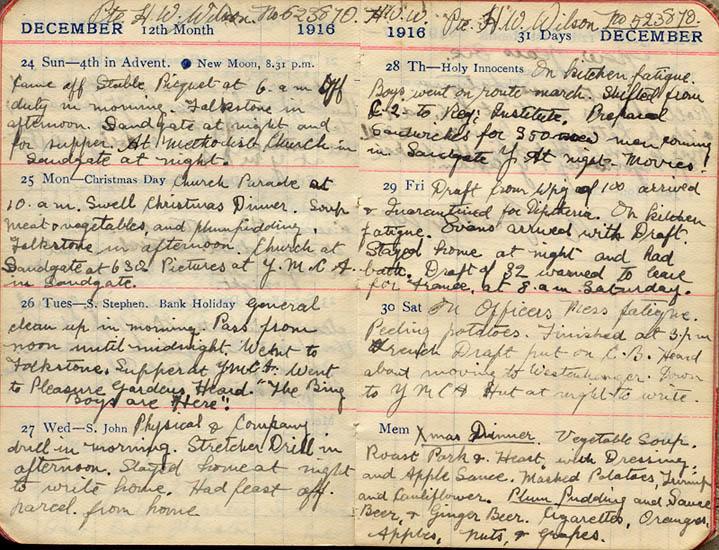 Pte H. W. Wilson. No 523870.
DECEMBER 12th Month 1916
24 Sun—4th in Advent. New Moon, 8.31 p.m.
Came off Stable Picquet at 6. a.m Off
duty in morning. Folkstone in
afternoon. Sandgate at night and
for supper. At Methodist Church in
Sandgate at night.
25 Mon—Christmas Day Church Parade at
10. a.m. Swell Christmas Dinner. Soup
meat & vegetables, and plum pudding.
Folkstone in afternoon. Church at
Sandgate at 630. Pictures at Y. M. C A.
in Sandgate.
26 Tues—S. Stephen. Bank Holiday General
clean up in morning. Pass from
noon until midnight. Went to
Folkstone. Supper at Y.M.C.A. Went
to Pleasure Gardens Heard. "The Bing
Boys are Here"!
27 Wed—S. John Physical & Company
drill in morning. Stretcher Drill in
afternoon. Stayed home at night
to write home. Had feast off
parcel from home
H.W.W. Pte. H.W. Wilson No 523870.
1916 31 Days DECEMBER
28 Th—Holy Innocents On kitchen fatigue.
Boys went on route march. Shifted from
C-2- to Reg: Institute. Prepared
Sandwiches for 350 men coming
in. Sandgate Y. At night. Movies!
29 Fri Draft from Wpg of 100 arrived
& Quarantined for Diptheria. On kitchen
fatigue. Evans arrived with Draft.
Stayed home at night and had
bath. Draft of 82 warned to leave
for France, at 8. a.m. Saturday.
30 Sat On Officers Mess fatigue.
Peeling potatoes. Finished at 3.p.m
French Draft put on C.B. Heard
about moving to Westenhanger. Down
to Y M C A Hut at night to write.
Mem Xmas Dinner. Vegetable Soup.
Roast Pork & Heast, with Dressing,
and Apple Sauce. Mashed Potatoes, Turnip
and Cauliflower. Plum Pudding and Sauce
Beer, & Ginger Beer. Cigarettes, Oranges,
Apples, Nuts, & Grapes.